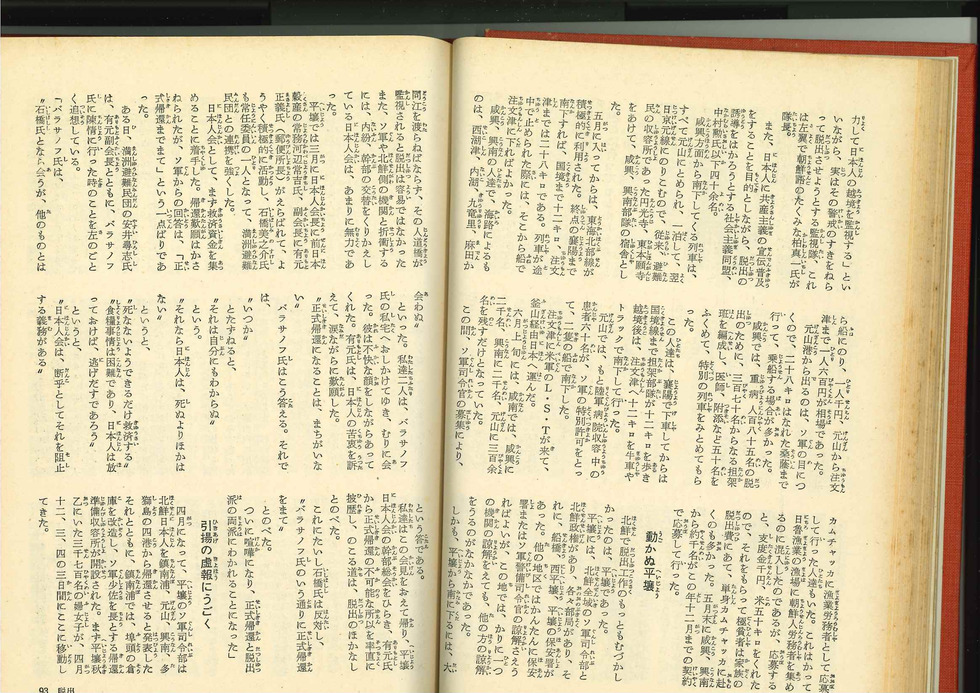 力して日本人の越境を監視するとい
いながら、実はその警戒のすきをねら
って脱出させようとする監視隊、これ
は左翼で朝鮮語のたくみな柏真一氏が
隊長。
また、日本人に共産主義の宣伝普及
をすることを目的としながら、脱出の
誘導をはかろうとする社会主義同盟、
中村勲氏以下四十余名。
咸興方面から南下してくる列車は、
すべて元山にとめられ、一泊して、翌
日京元線にのりこむので、従来、避難
民の収容所であった円光寺、東本願寺
をあけて、咸興、興南部隊の宿舎とし
た。
五月に入ってからは、東海北部線が
積極的に利用された。終点の襄陽まで
南下すれば、国境まで十二キロ、注文
津までは二十八キロである。列車が途
中で止められた際には、そこから船で
注文津に下ればよかった。
咸興、興南の人達で、海路によるも
のは、西湖津、内湖、九竜里、麻田か
ら船にのり、一人一千円、元山から注文
津まで一人六百円が相場であった。
元山港から出るのは、ソ軍の目につ
くので、二十八キロはなれた桑蔭まで
行って、乗船する場合が多かった。
咸興では、重病人百八十五名の脱
出のために、三百七十名からなる担架
班を編成し、医師、附添など五十名を
ふくめて、特別の列車をみとめてもら
った。
この人達は、襄陽で下車してからは
国境線まで担架部隊が十二キロを歩き
越境後は、注文津へ十二キロを牛車や
トラックで南下して行った。
元山では、もと陸軍病院収容中の
患者六十名が、ソ軍の特別許可をとっ
て、二隻の船で南下した。
注文津に米軍のL・S・Tが来て、
釜山経由日本へ運んだ。
六月上旬には、咸南では、咸興に
二千名、興南に二千名、元山に三百余
名を残すだけとなっていた。
この間、ソ軍司令官の募集により、
カムチャッカに漁業労務者として応募
して行った人達もいた。これはかつて
日魯漁業の漁場に朝鮮人労務者を集め
るのに混入したのであるが、応募する
と、支度金千円、米五十キロをくれた
ので、それをもらって極貧者は家族の
脱出費にあて、単身カムチャッカに赴
くのも多かった。五月末に咸興、興南
から約千名がこの年十二月までの契約
で応募して行った。
動かぬ平壌
北鮮で脱出工作のもっともむづかし
かったのは、平壌であった。
平壌には、北鮮全域のソ軍司令部と
北鮮政権があり、各々部局があり、そ
れに、船橋、西平壌、平壌の保安署が
あった。他の地区ではかんたんに保安
署またはソ軍警備司令官の諒解さえう
ればよいが、この地では、かりに一つ
の機関の諒解をえても、他の方の諒解
をうるのがなかなかであった。
しかも、平壌から南に下るには、大
同江を渡らねばならず、その人道橋が
監視されると脱出は容易ではなかった
また、ソ軍や北鮮側の機関と折衝する
には、内紛、幹部の交替をくりかえし
ている日本人会は、あまりに無力であ
った。
平壌では三月に日本人会長に前日本
穀産の常務渡辺常吉氏、副会長に有元
正義氏（郵便所長）がえらばれて、よ
うやく積極的に活動し、石橋美之介氏
も常任委員の一人となって、満洲避難
民団との連携を強くした。
日本人会として、まず救済資金を集
めることに着手した。帰還歎願はかさ
ねられたが、ソ軍からの回答は、「正
式帰還まで待て」という一点ばりであ
った。
ある日、満洲避難民団の安井尋志氏
は、有元副会長とともに、バラサノフ
氏に陳情に行った時のことを左のごと
く追想している。
「バラサノフ氏は、
〝石橋氏となら会うが、他のものとは
会わぬ〟
といった。私達二人は、バラサノフ
氏の私宅へおしかけてゆき、むりに会
った。彼は不快な顔をしながらあって
くれた。有元氏は、日本人の苦衷を訴
えて、涙ながらに歎願した。
〝正式帰還になることは、まちがいな
い〟
バラサノフ氏はこう答える。それで
は、
〝いつか〟
とたずねると、
〝それは自分にもわからぬ〟
という。
〝それなら日本人は、死ぬよりほかは
ない〟
というと、
〝死なないようできるだけ救済する〟
〝食糧事情は困難であり、日本人は放
っておけば、逃げだすであろう〟
というと、
〝日本人会は、断乎としてそれを阻止
する義務がある〟
という答である。
私達はこの会見をおえて帰り、平壌
日本人会の幹部総会をひらき、有元氏
から正式帰還の不可能な所以を率直に
披歴し、のこる途は、脱出のほかなし
とのべた。
これにたいし石橋氏は反対し、
〝バラサノフ氏のいう通りに正式帰還
をまて〟
とのべた。
ついに喧嘩になり、正式帰還と脱出
派の両派にわかれることになった」
引揚の虚報にうごく
四月になって、平壌のソ軍司令部は
北鮮日本人を鎮南浦、元山、興南、多
獅島の四港から帰還させると発表した
それとともに、鎮南浦では、埠頭の倉
庫を改造し、ソ軍少佐を長とする帰還
準備収容所が開設された。まず平壌秋
乙にいた三千七百名の婦女子が、四月
十二、三、四の三日間にここに移動し
てきた。
93 脱出